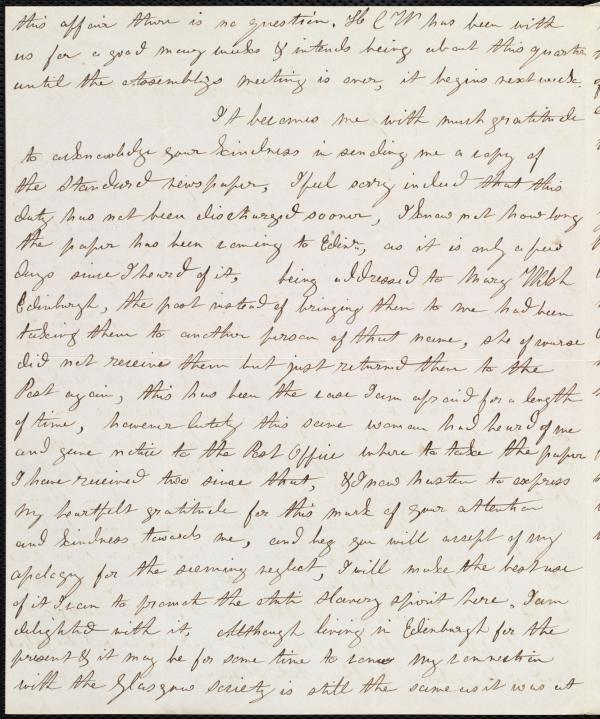 this affair there is no question. H C W has been with
us for a good many weeks & intends being about this quarter
until the Assemblys meeting is over, it begins next week.
It becomes me with much gratitude
to acknowledge your kindness in sending me a copy of
the Standard newspaper, I feel sorry indeed that this
duty has not been discharged sooner, I know not how long
the paper has been coming to Edinr, as it is only a few
days since I heard of it, being addressed to Mary Welsh
Edinburgh, the post instead of bringing them to me had been
taking them to another person of that name, she of course
did not receive them but just returned them to the
Post again, this has been the case I am afraid for a length
of time, however lately this same woman had heard of me
and gave notice to the Post Office where to take the paper
I have received two since that, & I now hasten to express
my heartfelt gratitude for this mark of your attention
and kindness towards me, and beg you will accept of my
apology for the seeming neglect, I will make the best use
of it I can to promote the Anti Slavery spirit here. I am
delighted with it. Although living in Edinburgh for the
present & it may be for some time to come my connection
with the Glasgow society is still the same as it was at